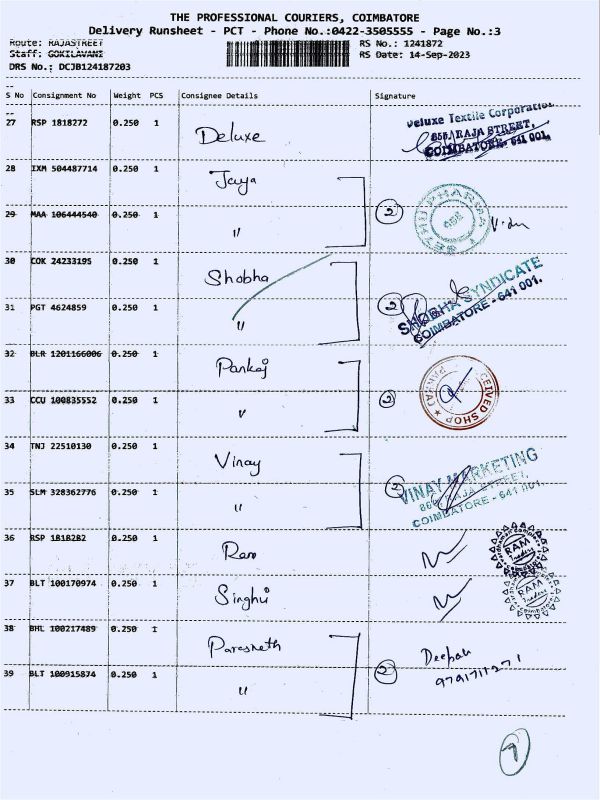 THE PROFESSIONAL COURIERS, COIMBATORE
Delivery Runsheet - PCT - Phone No.:0422-3505555 - Page No.:3
Route: RAJASTREET
RS No.: 1241872
Staff: GOKILAVANI
RS Date: 14-Sep-2023
DRS No.: DCJB124187203
S No Consignment No Weight PCS Consignee Details Signature
27 RSP 1818272 0.250 1 Deluxe
Deluxe Textile Corporation
856, RAJA STREET,
COIMBATORE - 641 001.
28 IXM 504487714 0.250 1 Jaya
29 MAA 106444540 0.250 1 "
2
30 COK 24233195 0.250 1 Shobha
31 PGT 4624859 0.250 1 "
2
SHOBHA SYNDICATE
COIMBATORE - 641 001.
32 BLR 1201166006 0.250 1 Pankaj
33 CCU 100835552 0.250 1 "
2
PANKAJ
RECEIVED SHOP
34 TNJ 22510130 0.250 1 Vinay
35 SLM 328362776 0.250 1 "
2
VINAY MARKETING
RAJA STREET,
COIMBATORE - 641 001.
36 RSP 1818282 0.250 1 Ram
RAM
Traders
37 BLT 100170974 0.250 1 Singhvi
RAM
Traders
38 BHL 100217489 0.250 1 Paresneth
39 BLT 100915874 0.250 1 "
2
Deepak
9791711271